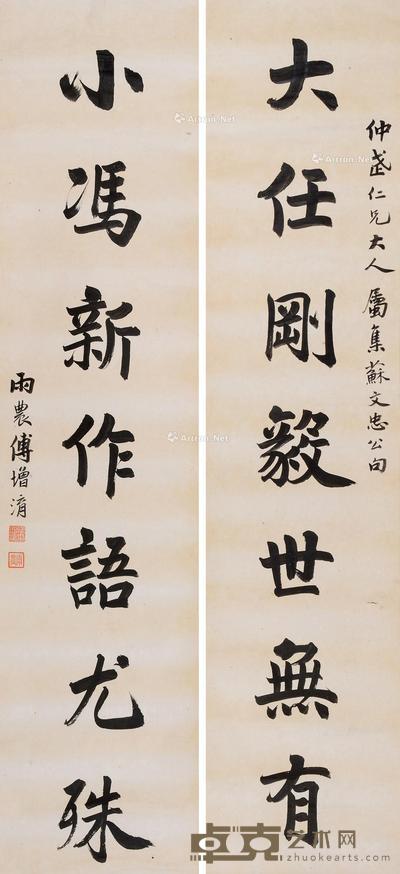 仲武仁兄大人屬集蘇文忠公句
大任剛毅世無有
小馮新作語尤殊
雨農傅增淯
卓克艺术网
zhuokearts.com
Artron.Net
Artron.Net
Artron.Net
Artron.Net